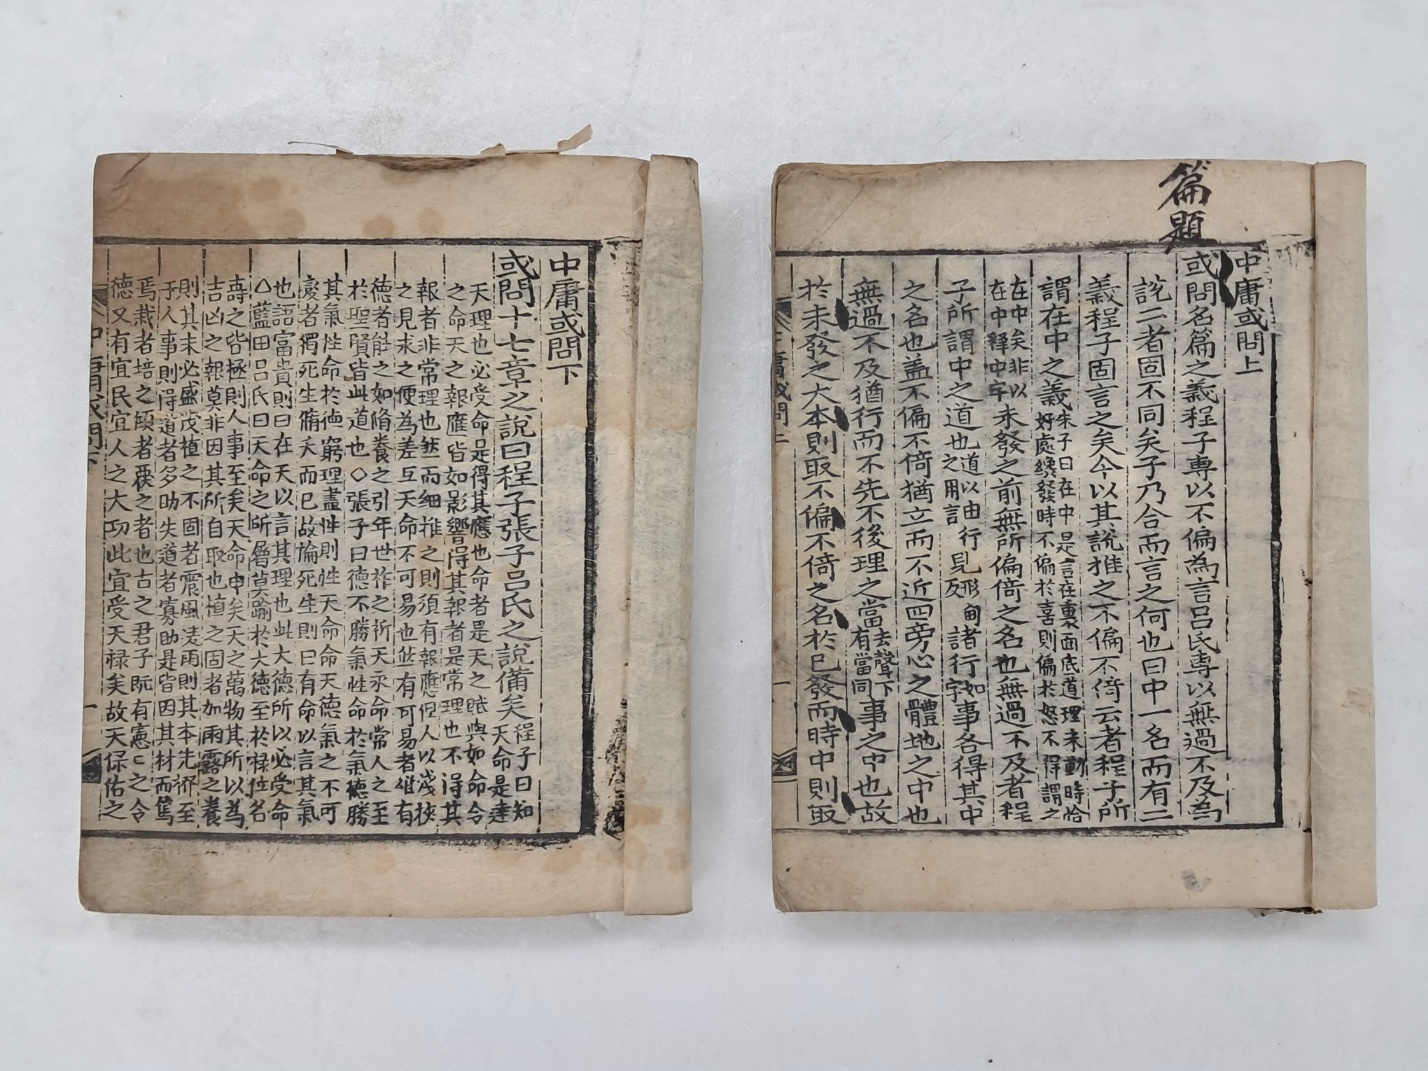 篇題
中庸或問上
或問名篇之義程子專以不偏為言呂氏專以無過不及為
說二者固不同矣子乃合而言之何也曰中一名而有二
義程子固言之矣今以其說推之不偏不倚云者程子所
謂在中之義朱子曰在中是言在裏面底道理未動時恰好處纔發時不偏於喜則偏於怒不得謂之
在中矣非以在中釋中字未發之前無所偏倚之名也無過不及者程
子所謂中之道也道以由行之用言見形甸反諸行如字事各得其中
之名也盖不偏不倚猶立而不近四旁心之體地之中也
無過不及猶行而不先不後理之當去聲下有當同事之中也故
於未發之大本則取不偏不倚之名於已發而時中則取
中庸或問下
或問十七章之說曰程子張子呂氏之說備矣程子曰知天命是達
天理也必受命是得其應也命者是天之賦與如命令
之命天之報應皆如影響得其報者是常理也不得其
報者非常理也然而細推之則須有報應但人以淺狹
之見求之便為差互天命不可易也然有可易者惟有
德者能之如脩養之引年世祚之祈天永命常人之至
於聖賢皆此道也◇張子曰德不勝氣性命於氣德勝
其氣性命於德窮理盡性則性天命命天德氣之不可
變者獨死生脩夭而已故論死生則曰有命以言其氣
也語富貴則曰在天以言其理也此大德所以必受命
△藍田呂氏曰天命之所屬莫踰於大德至於祿位名
壽之皆極則人事至矣天命申矣天之萬物其所以為
吉凶之報莫非因其所自取也植之固者加雨露之養
則其末必盛茂植之不固者震風凌雨則其本先撥至
于人事則得道者多助失道者寡助是皆因其材而篤
焉栽者培之傾者覆之者也古之君子既有憲憲之令
德又有宜民宜人之大功此宜受天祿矣故天保佑之